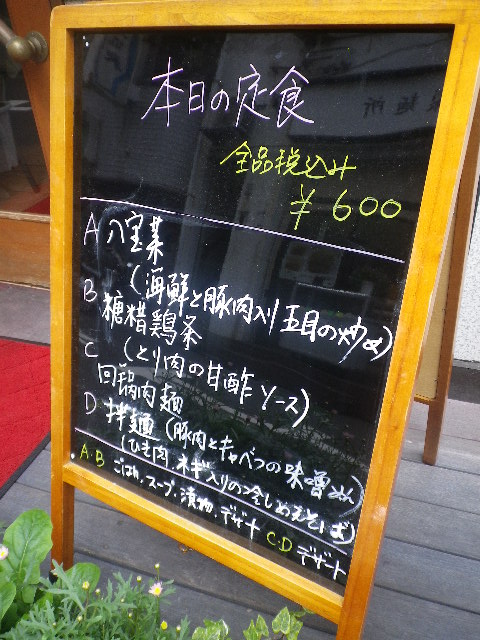 本日の定食
全品税込み
¥600
A 八宝菜
(海鮮と豚肉入り五目の炒め)
B 糖醋鶏条
(とり肉の甘酢ソース)
C 回鍋肉麺
(豚肉とキャベツの味噌めん)
D 拌麺
(ひき肉、ネギ入りの冷しめんそば)
A・B ごはん、スープ、漬物、デザート C・D デザート